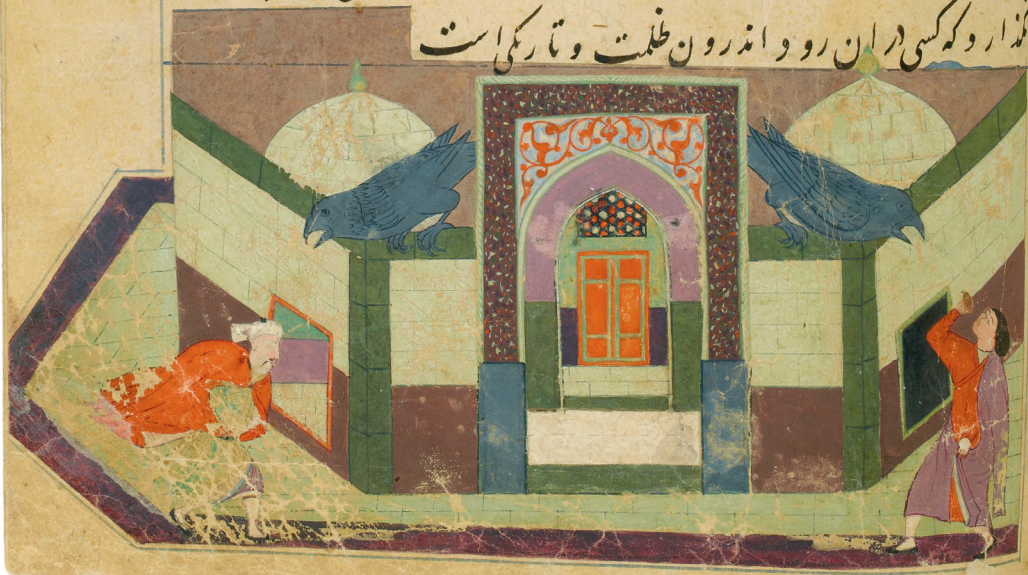 بگذارد که کسی در ان رود و اندرون ظلمت و تاریکی است